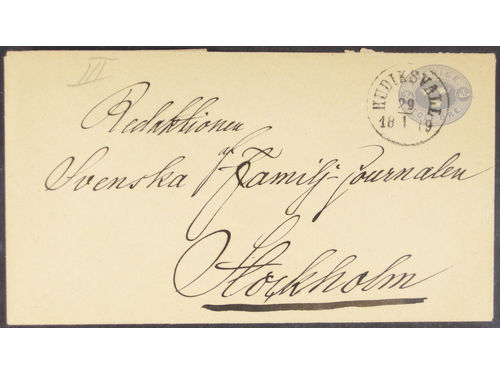 III
HUDIKSVALL
29
18 1 79
Redaktionen
af
Svenska Familj-Journalen
Stockholm